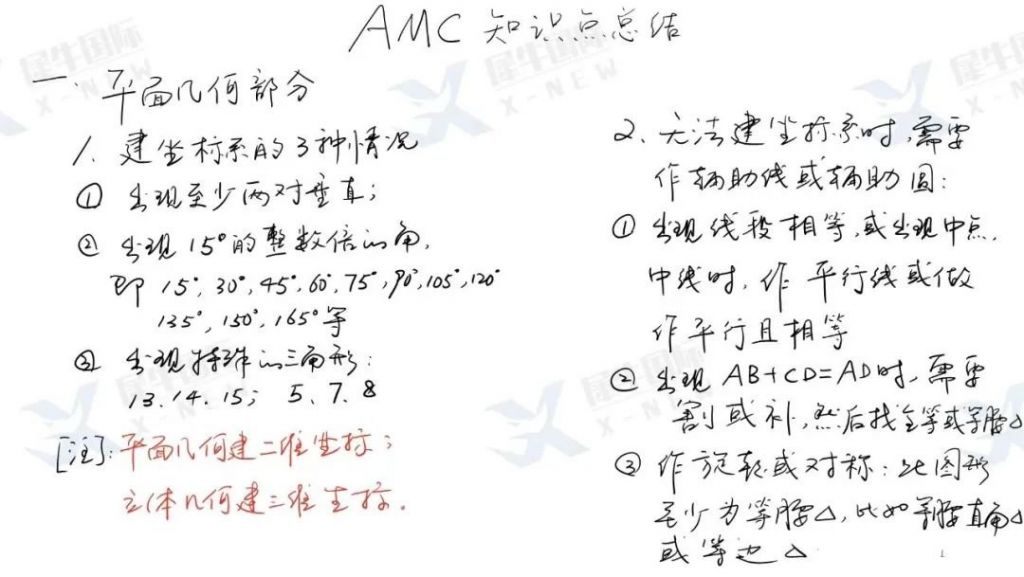 AMC 知识点总结
一. 平面几何部分
1. 建坐标系的3种情况
① 出现至少两对垂直;
② 出现15°的整数倍的角,
即 15°, 30°, 45°, 60°, 75°, 90°, 105°, 120°
135°, 150°, 165°等
③ 出现特殊的三角形:
13. 14. 15; 5. 7. 8
[注]: 平面几何建二维坐标;
立体几何建三维坐标.
2. 无法建坐标系时, 需要
作辅助线或辅助圆:
① 出现线段相等, 或出现中点.
中线时, 作平行线或做
作平行且相等
② 出现 AB+CD=AD时, 需要
割或补, 然后找全等或等腰△
③ 作旋转或对称: 此图形
至少为等腰△, 比如等腰直角△
或等边△
1
犀牛国际
X-NEW